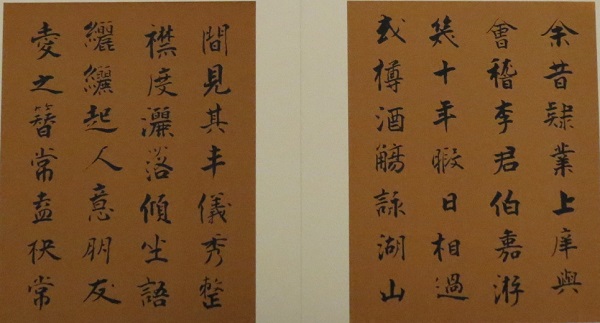 余昔隸業上庠與
會稽李君伯嘉游
幾十年暇日相過
或樽酒觴詠湖山
間見其丰儀秀整
襟度灑落傾坐語
纚纚起人意朋友
愛之簪常盍袂常